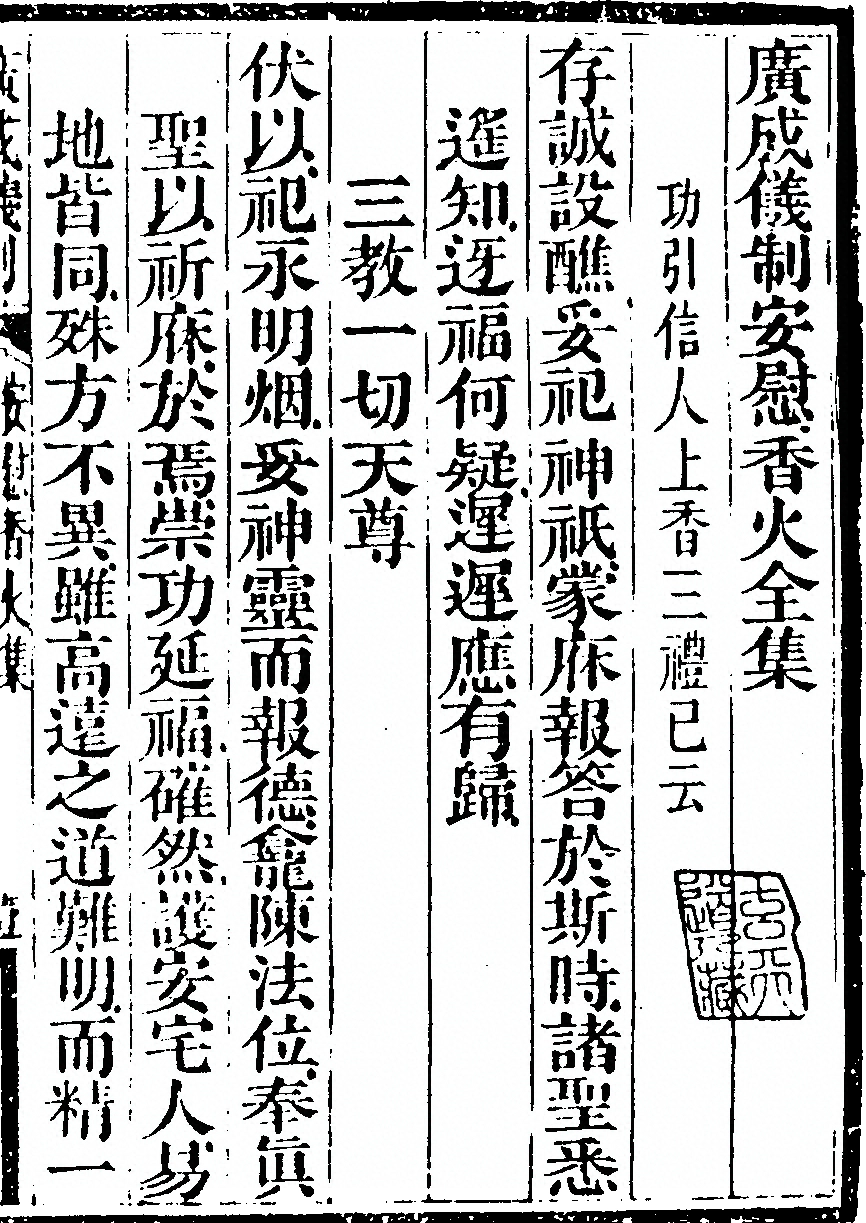 廣成儀制安慰香火全集
功引信人上香三禮已云
存誠設醮妥祀神祇蒙庥報答於斯時諸聖悉
遥知迓福何疑遲遲應有歸
三教一切天尊
伏以祀永明烟妥神靈而報德龕陳法位奉眞
聖以祈庥於焉崇功延福確然護安宅人易
地皆同殊方不異雖高遠之道難明而精一
廣成儀制 安慰香火集